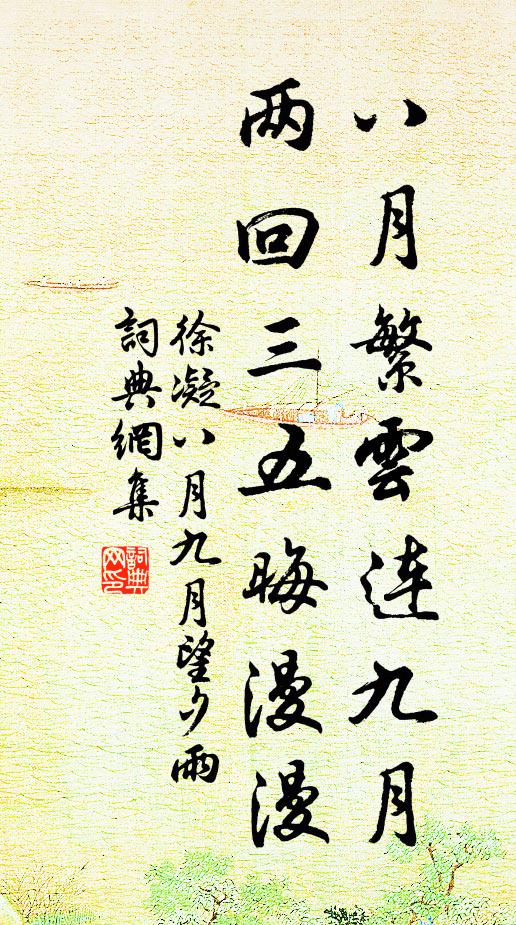 八月繁雲连九月
两回三五晦漫漫
徐凝八月九月望夕雨
詞典網集
詞典网印